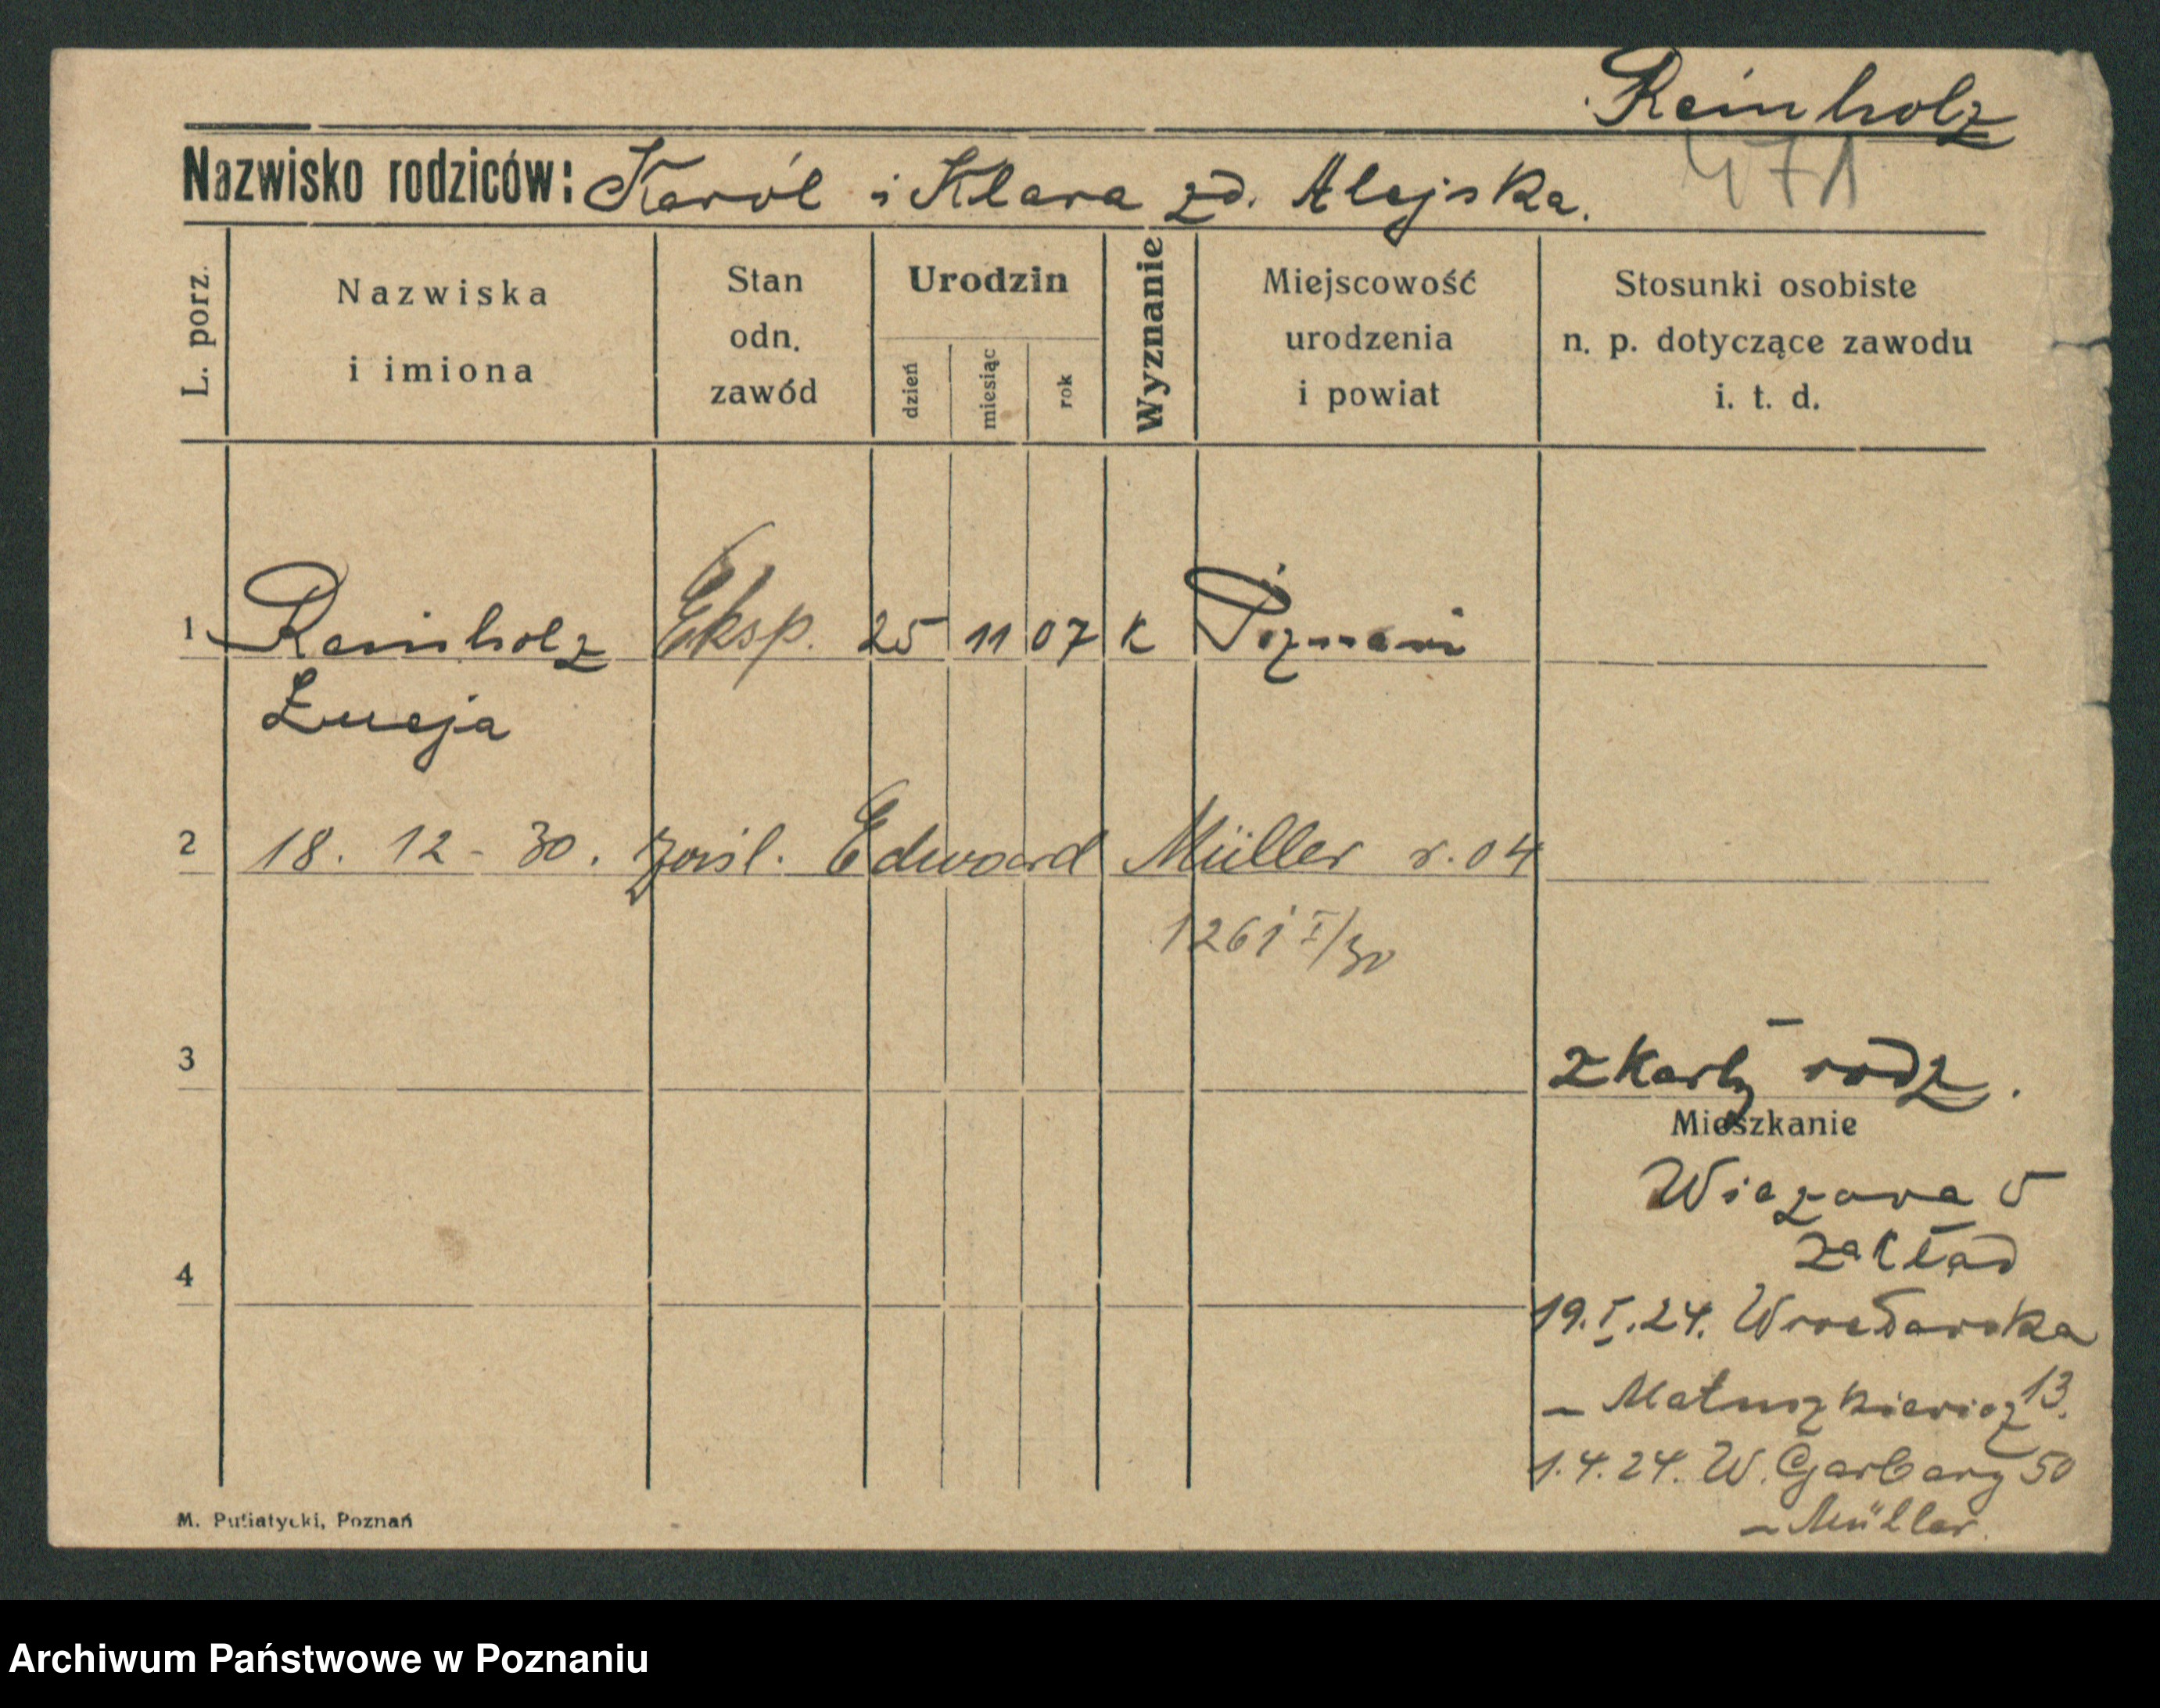 Reinholz
471
Nazwisko rodziców: Karól i Klara zd. Alejska.
L. porz.
Nazwiska i imiona
Stan odn. zawód
Urodzin
dzień
miesiąc
rok
Wyznanie
Miejscowość urodzenia i powiat
Stosunki osobiste n. p. dotyczące zawodu i. t. d.
1 Reinholz Eksp. 25 11 07 K Poznań
Łucja
2 18. 12 - 30. zaśl. Edward Müller r. 04
1261 I/30
3
z karty rodz.
Mieszkanie
Wiezowa 5
zakład
4
19.I.24. Wrocławska
– Matuszkiewicz 13.
1.4.24. W. Garbary 50
– Müller.
M. Putiatycki, Poznań
Archiwum Państwowe w Poznaniu